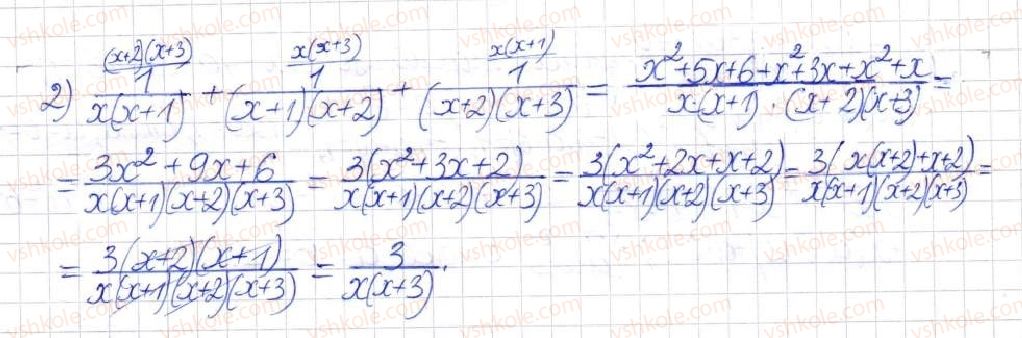 (x+2)(x+3) x(x+3) x(x+1)
2) 1/(x(x+1)) + 1/((x+1)(x+2)) + 1/((x+2)(x+3)) = (x²+5x+6+x²+3x+x²+x)/(x(x+1)·(x+2)(x+3)) =
= (3x²+9x+6)/(x(x+1)(x+2)(x+3)) = 3(x²+3x+2)/(x(x+1)(x+2)(x+3)) = 3(x²+2x+x+2)/(x(x+1)(x+2)(x+3)) = 3(x(x+2)+x+2)/(x(x+1)(x+2)(x+3)) =
= 3(x+2)(x+1)/(x(x+1)(x+2)(x+3)) = 3/(x(x+3)).